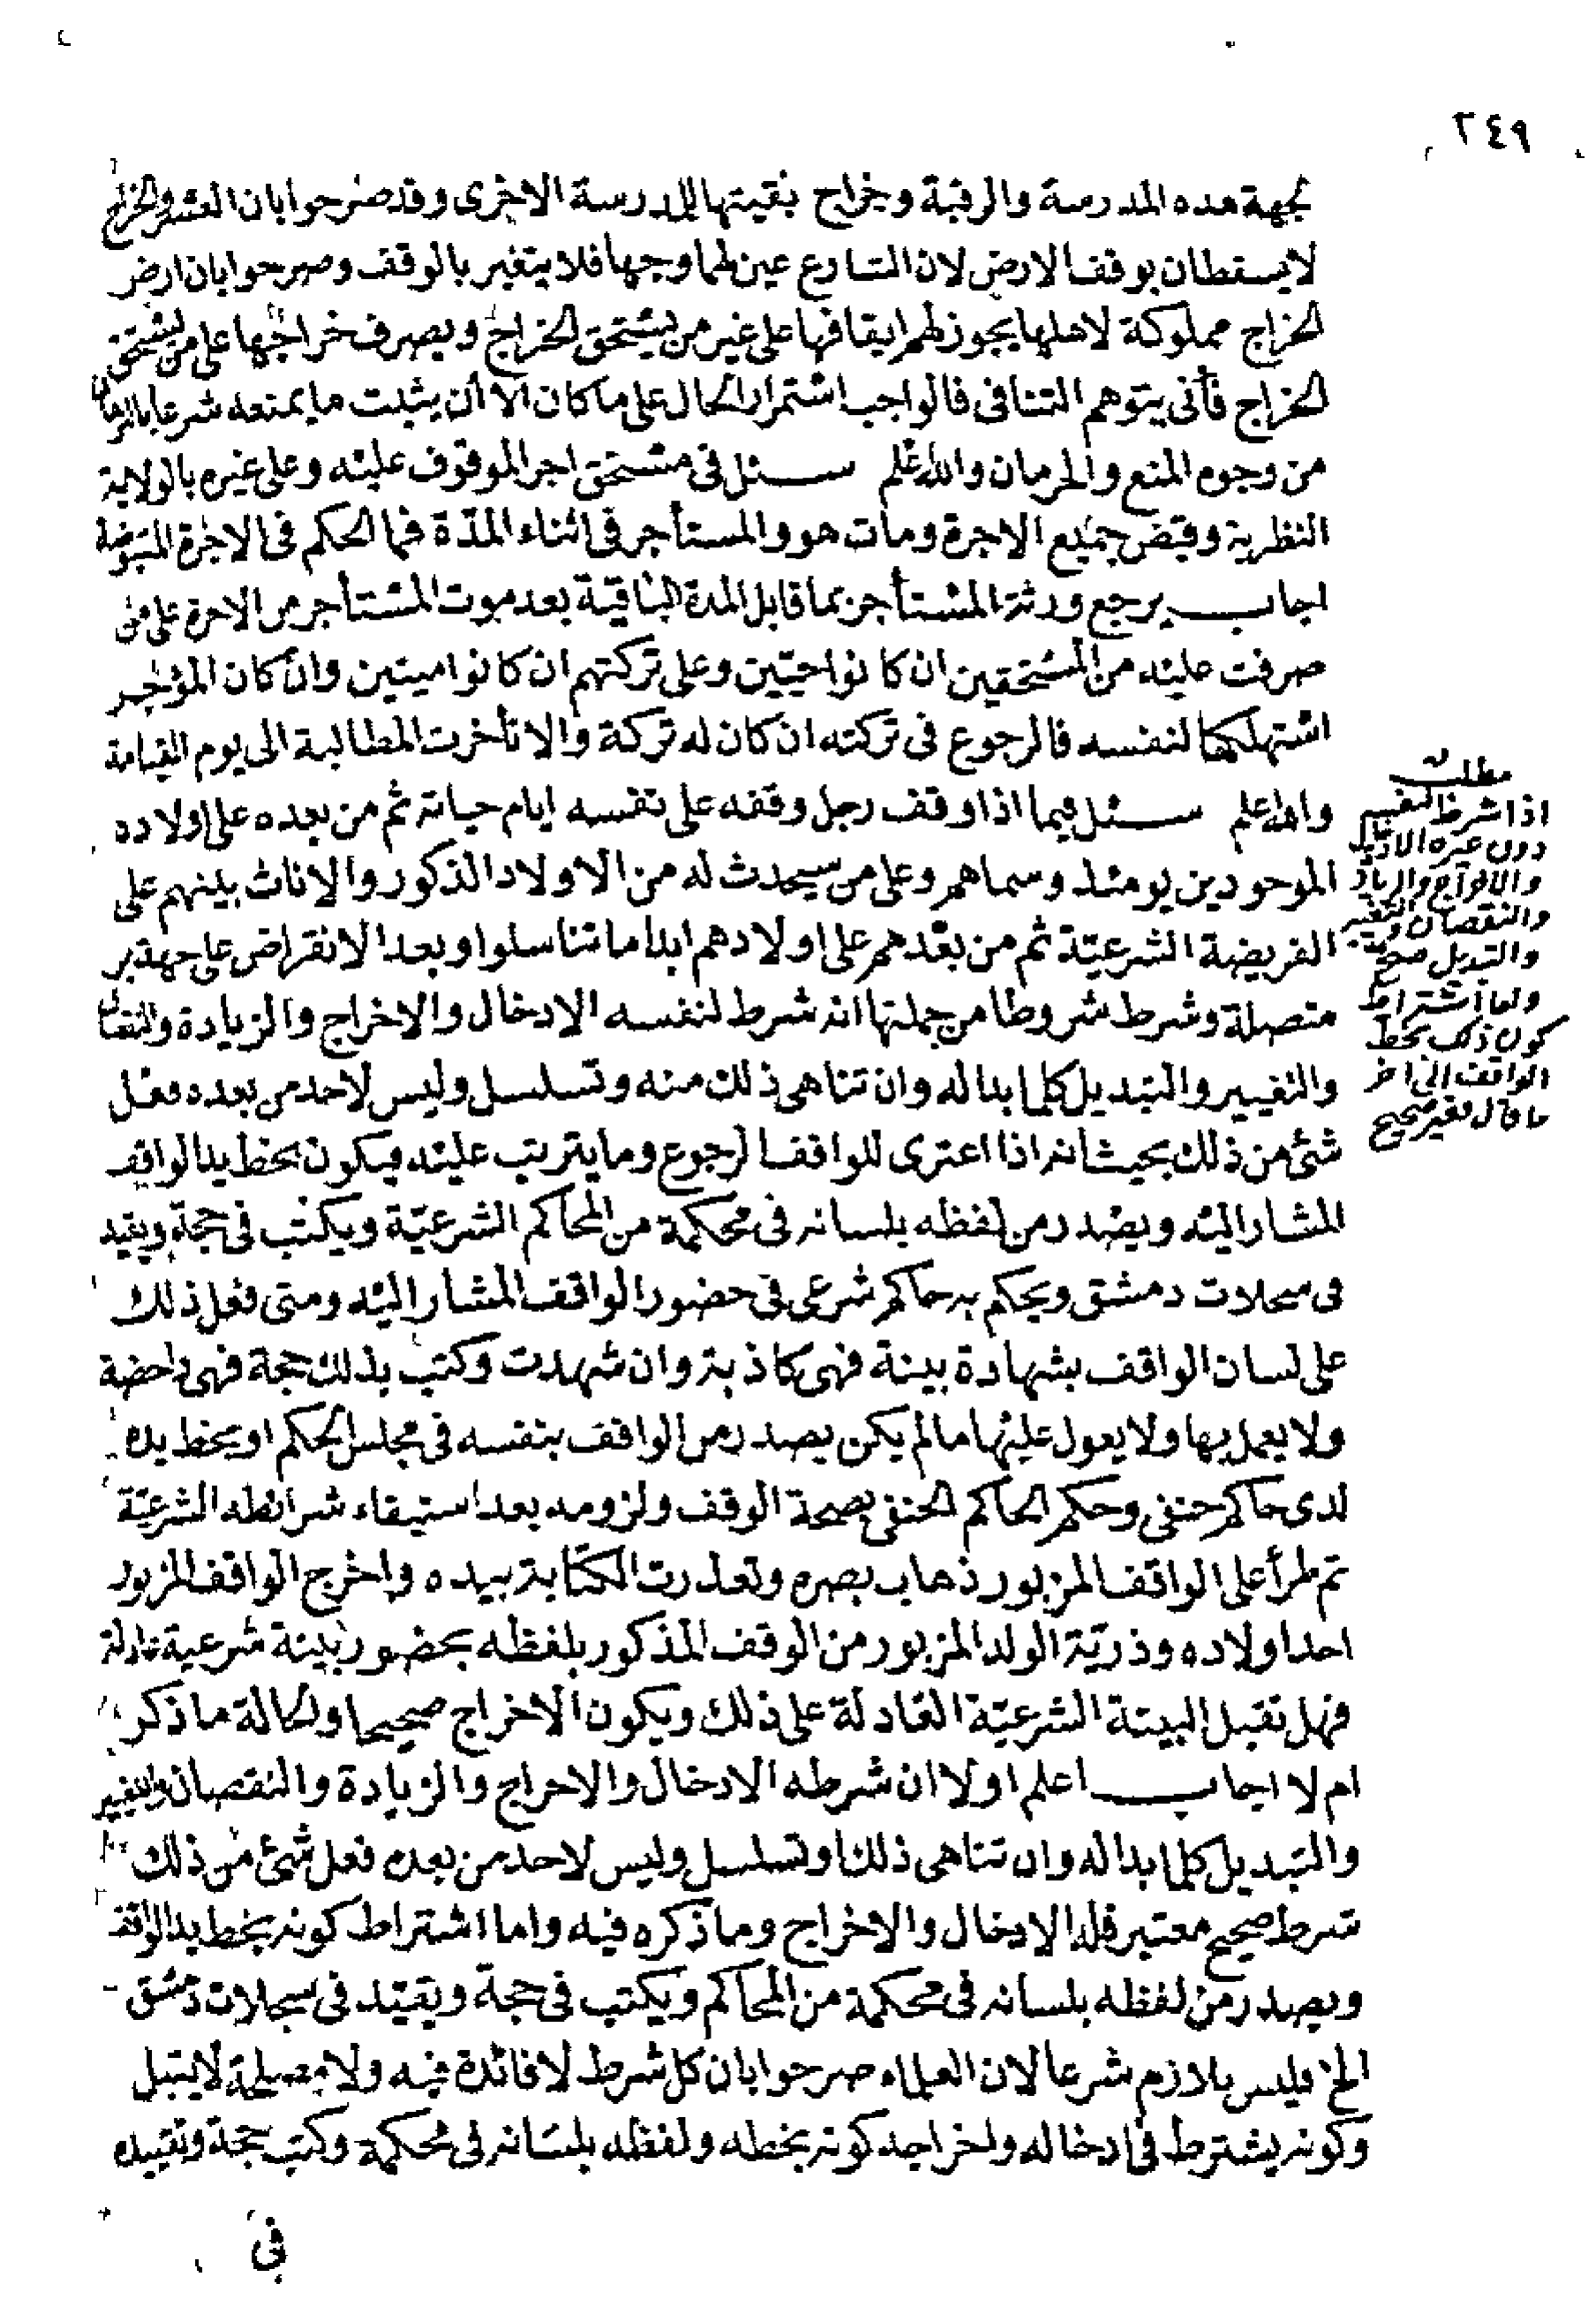 ٢٤٩
لجهة هذه المدرسة والرقبة وخراج بقيتها للمدرسة الاخرى وقد صرحوا بان العشر والخراج
لا يسقطان بوقف الارض لان الشارع عين لهما وجها فلا يتغير بالوقف وصرحوا بان ارض
الخراج مملوكة لاهلها يجوز لهم ايقافها على غير من يستحق الخراج ويصرف خراجها على من يستحق
الخراج فأنى يتوهم التنافى فالواجب استمرار الحال على ما كان الا أن يثبت ما يمنعه شرعا
من وجوه المنع والحرمان والله اعلم سئل فى مستحق اجر الموقوف عليه وعلى غيره بالولاية
النظرية وقبض جميع الاجرة ومات هو والمستأجر فى اثناء المدّة فما الحكم فى الاجرة المقبوضة
اجاب يرجع ورثة المستأجر بما قابل المدة الباقية بعد موت المستأجر من الاجرة على من
صرفت عليه من المستحقين ان كانوا حيّين وعلى تركتهم ان كانوا ميتين وان كان المؤجر
استهلكها لنفسه فالرجوع فى تركته ان كان له تركة والا تأخرت المطالبة الى يوم القيامة
والله اعلم سئل فيما اذا وقف رجل وقفه على نفسه ايام حياته ثم من بعده على اولاده
الموجودين يومئذ وسماهم وعلى من سيحدث له من الاولاد الذكور والاناث بينهم على
الفريضة الشرعيّة ثم من بعدهم على اولادهم ابدا ما تناسلوا وبعد الانقراض على جهة بر
متصلة وشرط شروطا من جملتها انه شرط لنفسه الادخال والاخراج والزيادة والنقصان
والتغيير والتبديل كلما بدا له وان تناهى ذلك منه وتسلسل وليس لاحد من بعده فعل
شئ من ذلك بحيث انه اذا اعترى للواقف الرجوع وما يترتب عليه فيكون بخط يد الواقف
المشار اليه ويصدر من لفظه بلسانه فى محكمة من المحاكم الشرعيّة ويكتب فى حجة ويقيد
فى سجلات دمشق ويحكم به حاكم شرعى فى حضور الواقف المشار اليه ومتى فعل ذلك
على لسان الواقف بشهادة بينة فهى كاذبة وان شهدت وكتب بذلك حجة فهى داحضة
ولا يعمل بها ولا يعول عليها ما لم يكن يصدر من الواقف بنفسه فى مجلس الحكم او بخط يده
لدى حاكم حنفى وحكم الحاكم الحنفى بصحة الوقف ولزومه بعد استيفاء شرائطه الشرعيّة
ثم طرأ على الواقف المزبور ذهاب بصره وتعذرت الكتابة بيده واخرج الواقف المزبور
احد اولاده وذريّة الولد المزبور من الوقف المذكور بلفظه بحضور بينة شرعية عادلة
فهل تقبل البينة الشرعيّة العادلة على ذلك ويكون الاخراج صحيحا والحالة ما ذكر
ام لا اجاب اعلم اولا ان شرطه الادخال والاخراج والزيادة والنقصان والتغيير
والتبديل كلما بدا له وان تناهى ذلك او تسلسل وليس لاحد من بعده فعل شئ من ذلك
شرط صحيح معتبر فله الادخال والاخراج وما ذكره فيه واما اشتراط كونه بخط يد الواقف
ويصدر من لفظه بلسانه فى محكمة من المحاكم ويكتب فى حجة ويقيّد فى سجلات دمشق
الخ فليس بلازم شرعا لان العلماء صرحوا بان كل شرط لا فائدة فيه ولا مصلحة لا يقبل
وكونه يشترط فى ادخاله واخراجه كونه بخطه ولفظه بلسانه فى محكمة وكتب حجة وتقييده
فى
مطلب
اذا شرط لنفسه
دون غيره الادخال
والاخراج والزيادة
والنقصان والتغيير
والتبديل صح
واما اشتراط
كون ذلك بخط
الواقف الى اخر
ما قال فغير صحيح